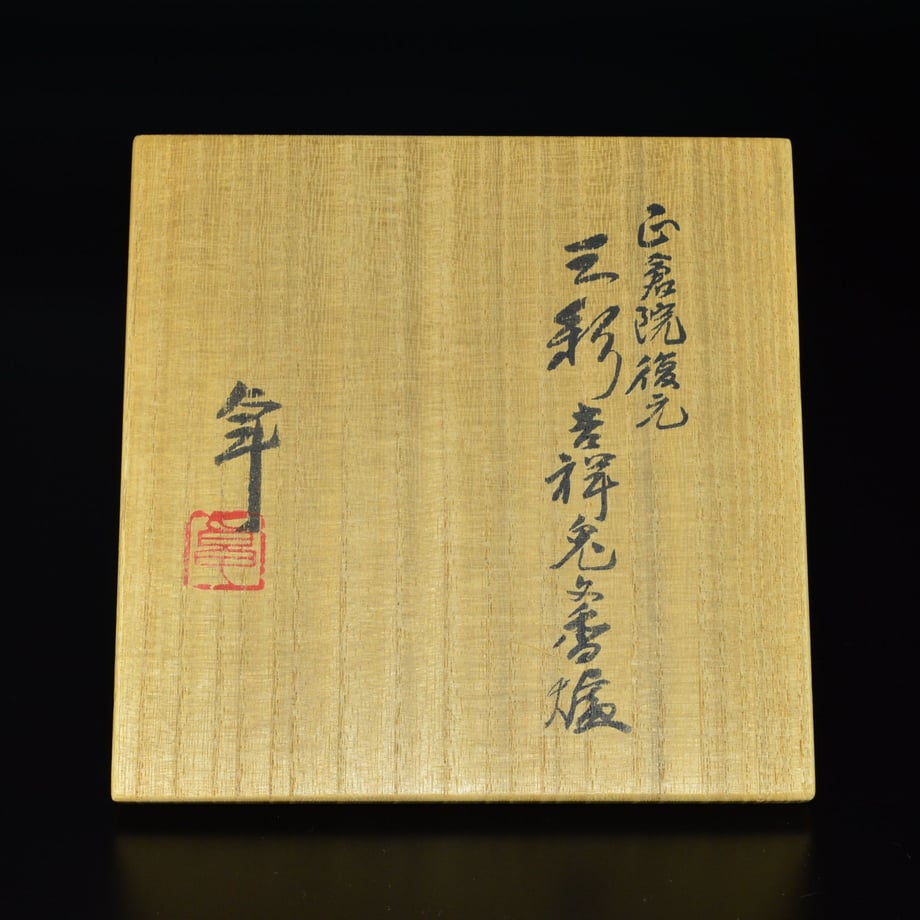 正倉院復元
三彩吉祥兎文香爐